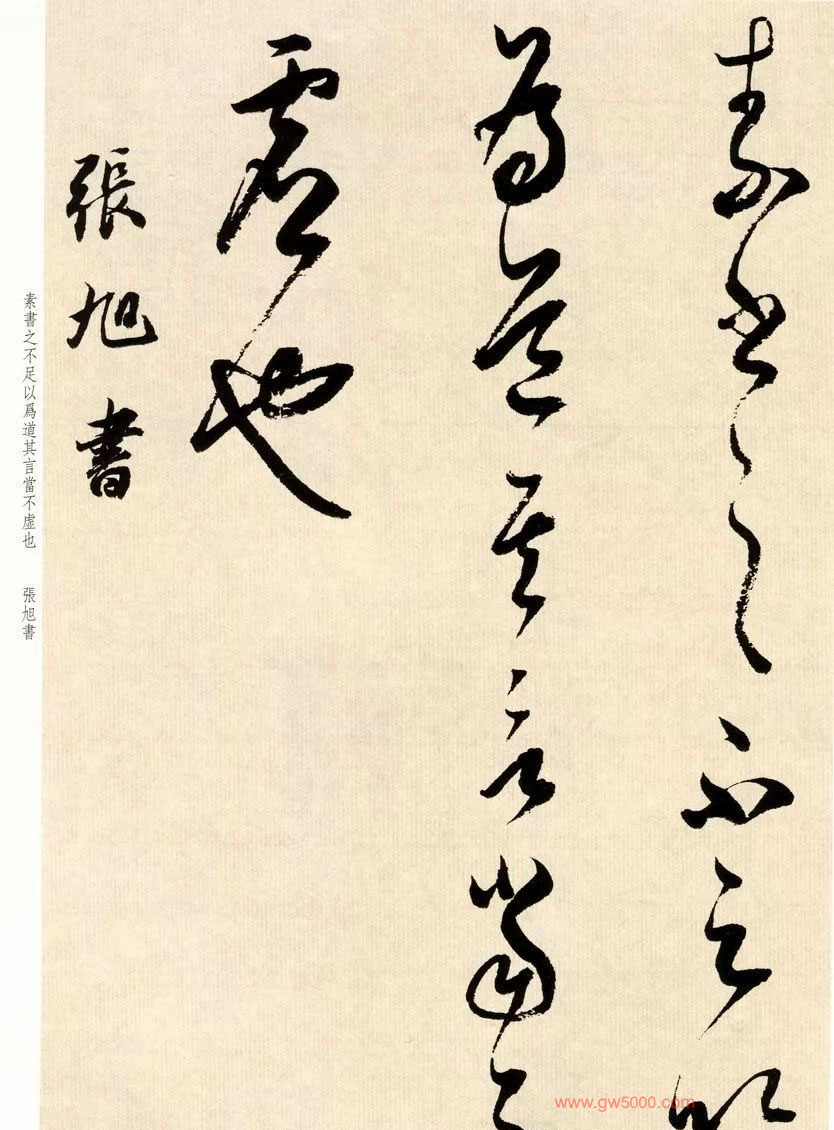 素書之不足以
爲道其言當不
虛也
張旭書
素書之不足以爲道其言當不虛也 張旭書
www.gw5000.com